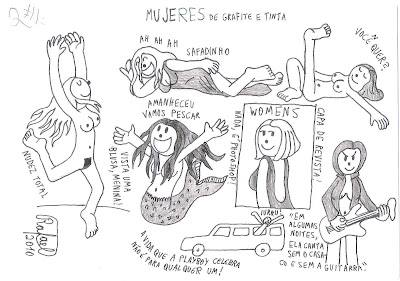 2#1.
MUJERES DE GRAFITE E TINTA
AH AH AH
SAFADINHO
VOCÊ QUER?
NUDEZ TOTAL
VISTA UMA
BLUSA, MENINA!
AMANHECEU
VAMOS PESCAR
WOMENS
NADA, É PHOTOSHOP!
CAPA DE REVISTA!
Rafael
2010
A VIDA QUE A PLAYBOY CELEBRA
NÃO É PARA QUALQUER UM!
"EM
ALGUMAS
NOITES,
ELA CANTA
SEM O CASA
CO E SEM A GUITARRA."